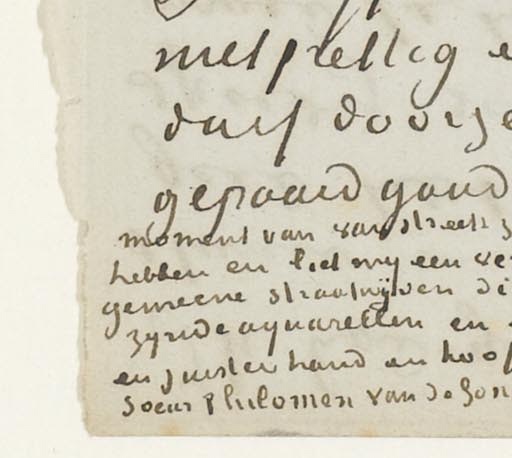 met prettig
durf doorse
gepaard gaand
moment van van streek z
hebben en liet my een ve
gemeene straatwijven di
zynde aquarellen en
en juister hand en hoof
Soeur Philomen van de Gon